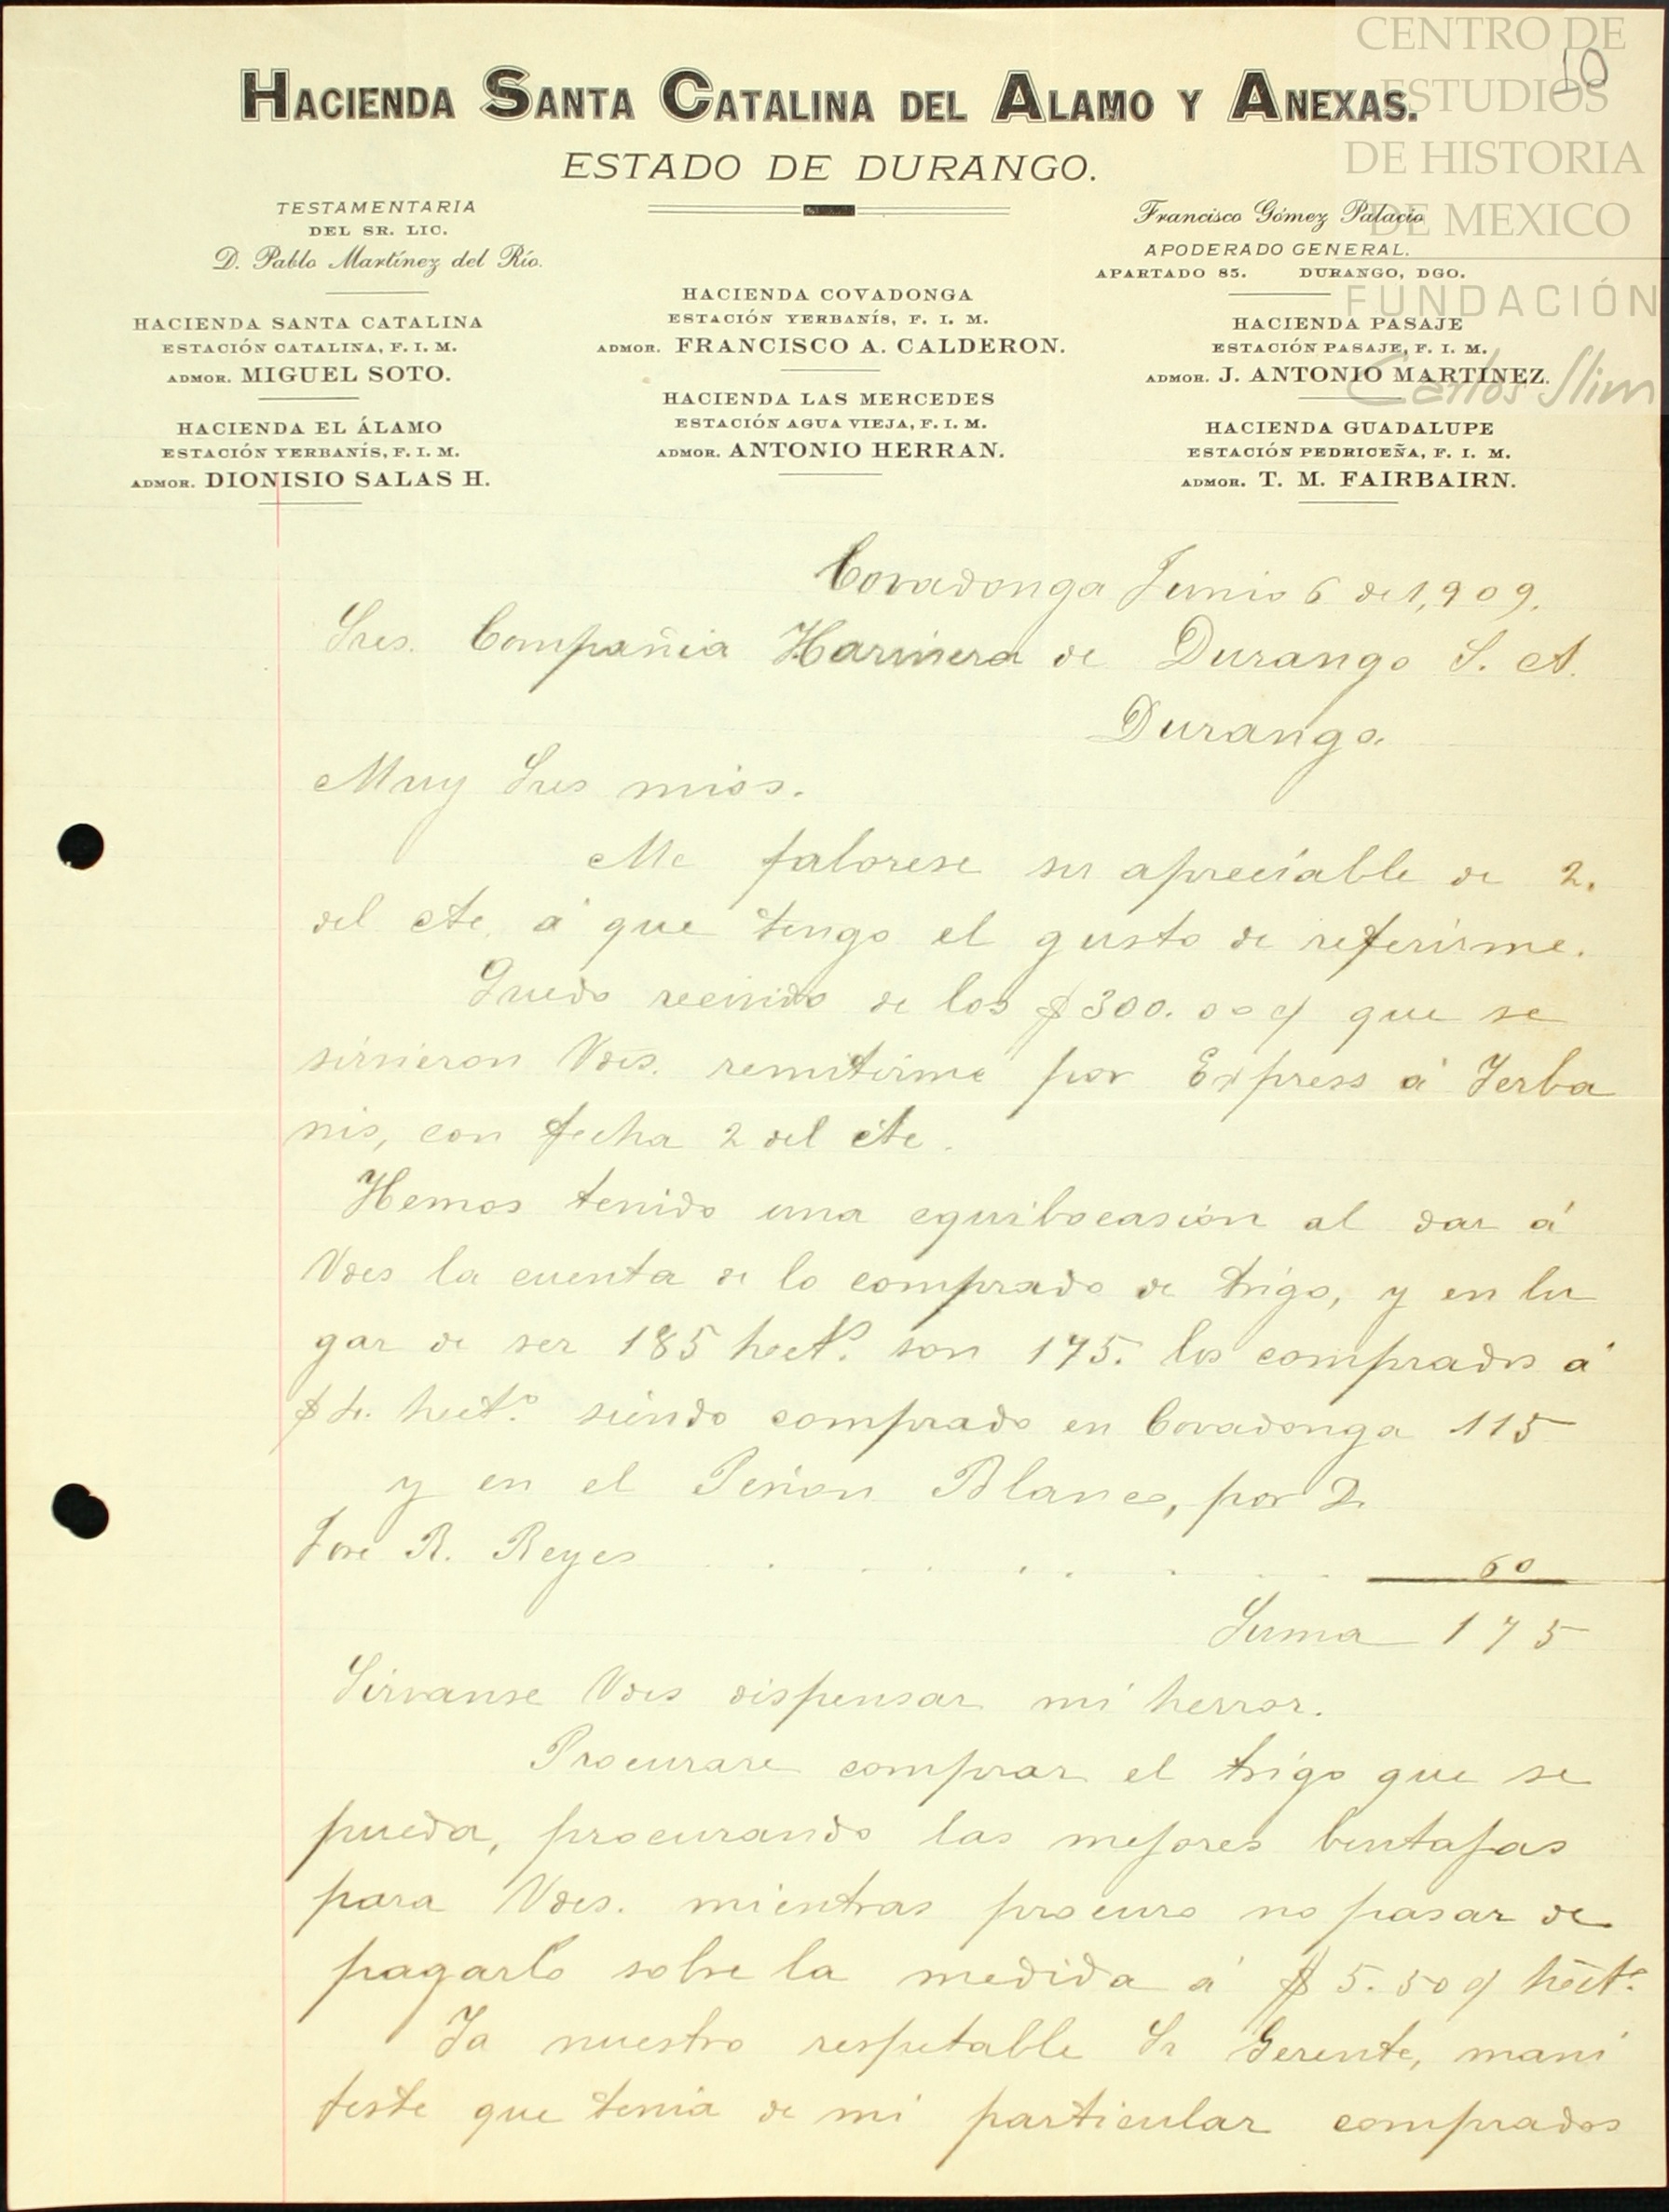 CENTRO DE
ESTUDIOS
DE HISTORIA
DE MEXICO
FUNDACIÓN
Carlos Slim
10
HACIENDA SANTA CATALINA DEL ALAMO Y ANEXAS.
ESTADO DE DURANGO.
TESTAMENTARIA
DEL SR. LIC.
D. Pablo Martínez del Río.
HACIENDA SANTA CATALINA
ESTACIÓN CATALINA, F. I. M.
ADMOR. MIGUEL SOTO.
HACIENDA EL ÁLAMO
ESTACIÓN YERBANÍS, F. I. M.
ADMOR. DIONISIO SALAS H.
HACIENDA COVADONGA
ESTACIÓN YERBANÍS, F. I. M.
ADMOR. FRANCISCO A. CALDERON.
HACIENDA LAS MERCEDES
ESTACIÓN AGUA VIEJA, F. I. M.
ADMOR. ANTONIO HERRAN.
Francisco Gómez Palacio
APODERADO GENERAL.
APARTADO 85. DURANGO, DGO.
HACIENDA PASAJE
ESTACIÓN PASAJE, F. I. M.
ADMOR. J. ANTONIO MARTINEZ.
HACIENDA GUADALUPE
ESTACIÓN PEDRICEÑA, F. I. M.
ADMOR. T. M. FAIRBAIRN.
Covadonga Junio 6 de 1,909.
Sres. Compañia Harinera de Durango S. A.
Durango.
Muy Sres mios.
Me faborese su apreciable de 2.
del cte. á que tengo el gusto de referirme.
Quedo recivido de los $300.00 c/ que se
sirvieron Vdes. remitirme por Express á Yerba
nis, con fecha 2 del cte.
Hemos tenido una equibocasion al dar á
Vdes la cuenta de lo comprado de trigo, y en lu
gar de ser 185 hect.º son 175. los comprados á
$4. hect.º siendo comprado en Covadonga 115
y en el Peñon Blanco, por D.
Jose R. Reyes . . . . . . . 60
Suma 175
Sirvanse Vdes dispensar mi herror.
Procurare comprar el trigo que se
pueda, procurando las mejores bentajas
para Vdes. mientras procuro no pasar de
pagarlo sobre la medida á $5.50 c/ hect.º
Ya nuestro respetable Sr Gerente, mani
feste que tenia de mi particular comprados